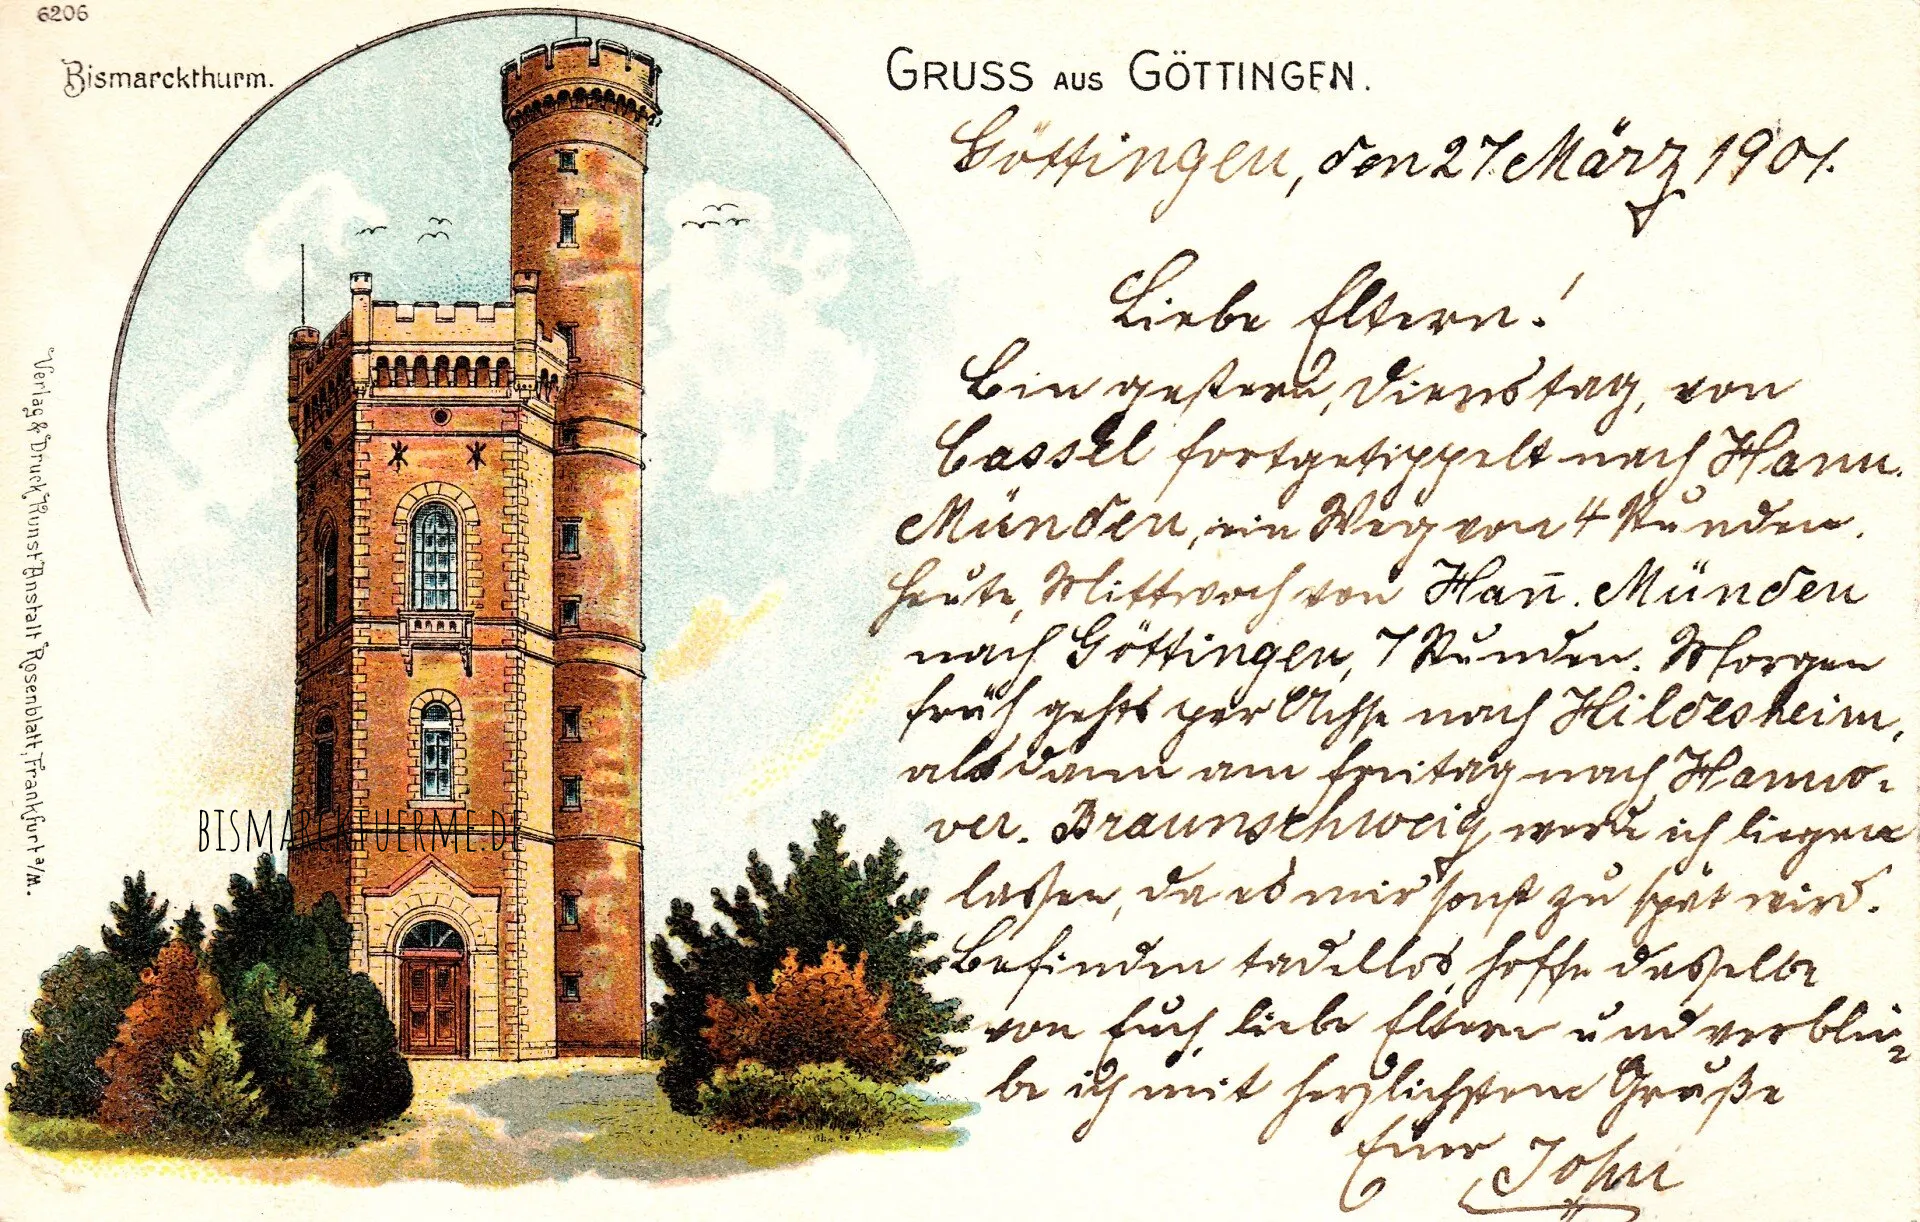 6206
Bismarckthurm.
GRUSS AUS GÖTTINGEN.
Göttingen, den 27. März 1901.
Liebe Eltern!
Bin gestern, Dienstag, von
Cassel fortgetippelt nach Hann.
Münden, ein Weg von 4 Stunden.
Heute, Mittwoch von Han̄. Münden
nach Göttingen, 7 Stunden. Morgen
früh gehts per Achse nach Hildesheim,
alsdann am Freitag nach Hanno-
ver. Braunschweig werde ich liegen
lassen, da es mir sonst zu spät wird.
Befinden tadellos, hoffe dasselbe
von Euch, liebe Eltern und verblei-
be ich mit herzlichstem Gruße
Euer John
Verlag & Druck Kunst-Anstalt Rosenblatt, Frankfurt a/M.
BISMARCKTUERME.DE